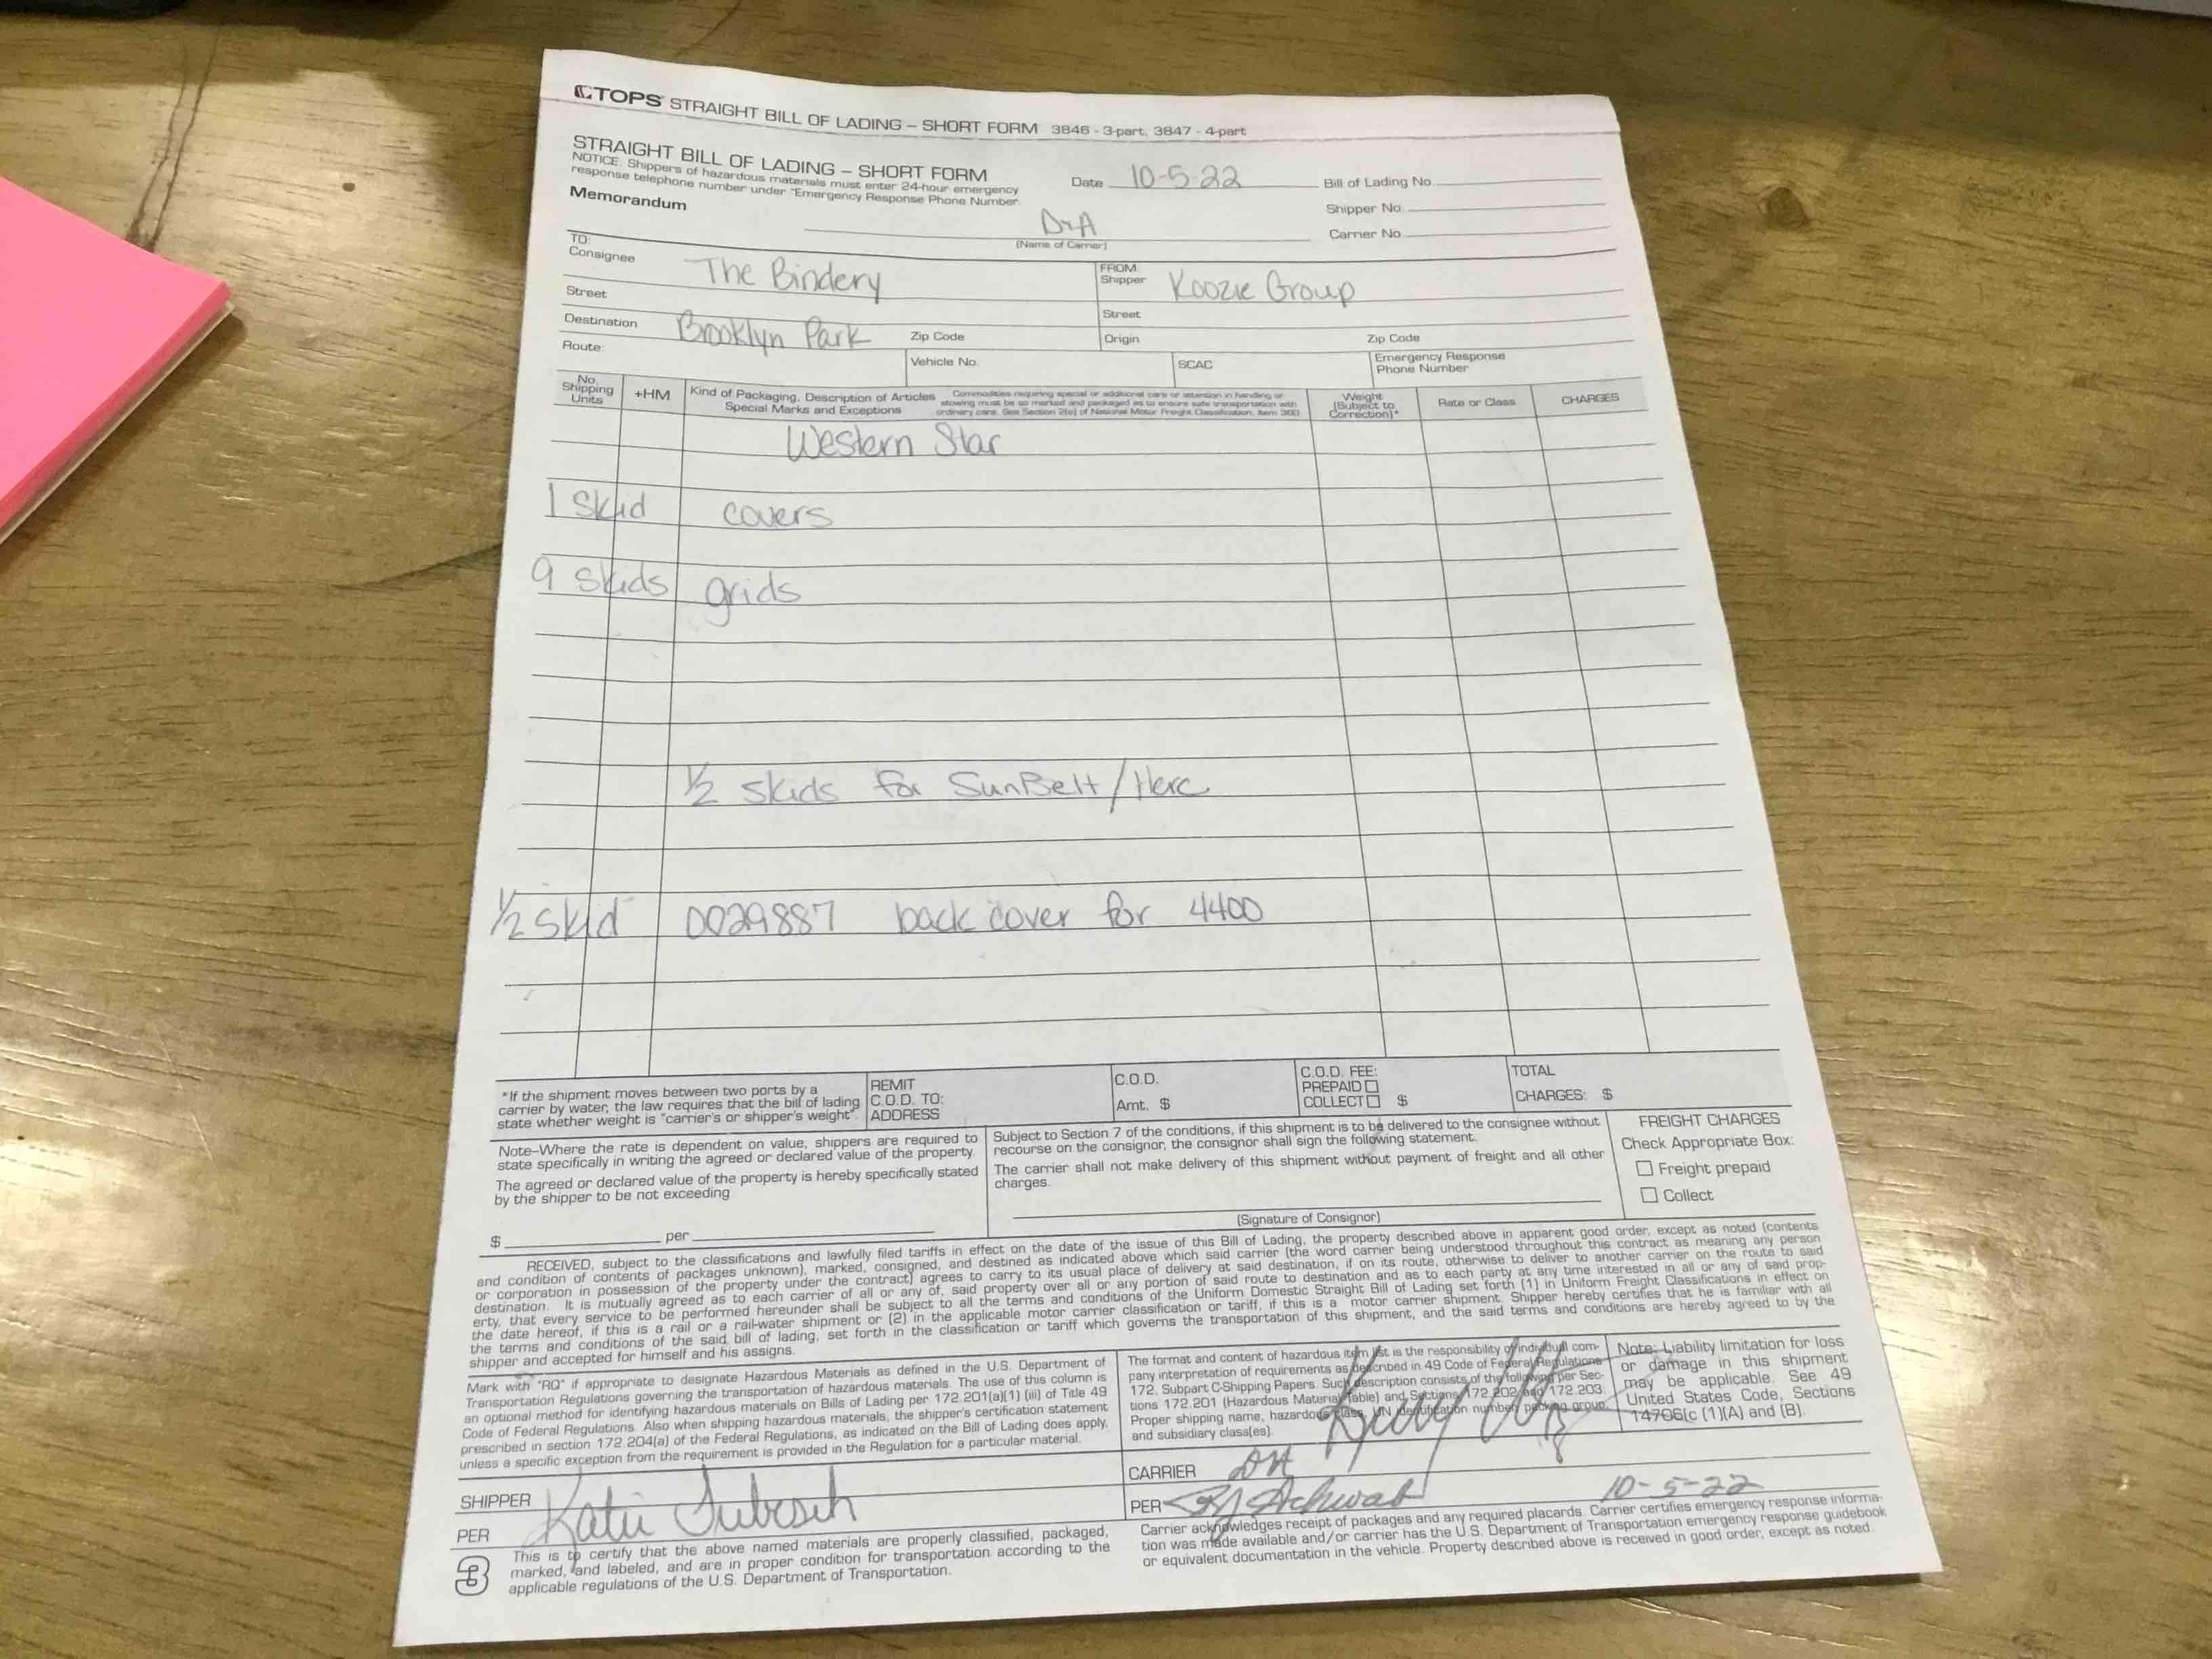 TOPS STRAIGHT BILL OF LADING – SHORT FORM 3846 - 3-part, 3847 - 4-part
STRAIGHT BILL OF LADING – SHORT FORM
NOTICE: Shippers of hazardous materials must enter 24-hour emergency
response telephone number under "Emergency Response Phone Number.
Memorandum
Date 10-5-22
Bill of Lading No.
Shipper No.
Carrier No.
(Name of Carrier)
TO:
Consignee The Bindery
FROM:
Shipper Koozie Group
Street
Street
Destination Brooklyn Park Zip Code
Origin Zip Code
Route:
Vehicle No.
SCAC
Emergency Response
Phone Number
No.
Shipping
Units
+HM
Kind of Packaging, Description of Articles
Special Marks and Exceptions
Commodities requiring special or additional care or attention in handling or
stowing must be so marked and packaged as to ensure safe transportation with
ordinary care. See Section 2(e) of National Motor Freight Classification, Item 360
Weight
(Subject to
Correction)*
Rate or Class
CHARGES
Western Star
1 Skid covers
9 skids grids
1/2 skids for SunBelt/Herc
1/2 skid 0029887 back cover for 4400
*If the shipment moves between two ports by a
carrier by water, the law requires that the bill of lading
state whether weight is "carrier's or shipper's weight".
REMIT
C.O.D. TO:
ADDRESS
C.O.D.
Amt. $
C.O.D. FEE:
PREPAID
COLLECT $
TOTAL
CHARGES: $
Note–Where the rate is dependent on value, shippers are required to
state specifically in writing the agreed or declared value of the property.
The agreed or declared value of the property is hereby specifically stated
by the shipper to be not exceeding
$ per
Subject to Section 7 of the conditions, if this shipment is to be delivered to the consignee without
recourse on the consignor, the consignor shall sign the following statement.
The carrier shall not make delivery of this shipment without payment of freight and all other
charges.
(Signature of Consignor)
FREIGHT CHARGES
Check Appropriate Box:
Freight prepaid
Collect
RECEIVED, subject to the classifications and lawfully filed tariffs in effect on the date of the issue of this Bill of Lading, the property described above in apparent good order, except as noted (contents
and condition of contents of packages unknown), marked, consigned, and destined as indicated above which said carrier (the word carrier being understood throughout this contract as meaning any person
or corporation in possession of the property under the contract) agrees to carry to its usual place of delivery at said destination, if on its route, otherwise to deliver to another carrier on the route to said
destination. It is mutually agreed as to each carrier of all or any of, said property over all or any portion of said route to destination and as to each party at any time interested in all or any of said prop-
erty, that every service to be performed hereunder shall be subject to all the terms and conditions of the Uniform Domestic Straight Bill of Lading set forth (1) in Uniform Freight Classifications in effect on
the date hereof, if this is a rail or a rail-water shipment or (2) in the applicable motor carrier classification or tariff, if this is a motor carrier shipment. Shipper hereby certifies that he is familiar with all
the terms and conditions of the said bill of lading, set forth in the classification or tariff which governs the transportation of this shipment, and the said terms and conditions are hereby agreed to by the
shipper and accepted for himself and his assigns.
Mark with "RQ" if appropriate to designate Hazardous Materials as defined in the U.S. Department of
Transportation Regulations governing the transportation of hazardous materials. The use of this column is
an optional method for identifying hazardous materials on Bills of Lading per 172.201(a)(1) (iii) of Title 49
Code of Federal Regulations. Also when shipping hazardous materials, the shipper's certification statement
prescribed in section 172.204(a) of the Federal Regulations, as indicated on the Bill of Lading does apply,
unless a specific exception from the requirement is provided in the Regulation for a particular material.
The format and content of hazardous item list is the responsibility of individual com-
pany interpretation of requirements as described in 49 Code of Federal Regulations
172, Subpart C-Shipping Papers. Such description consists of the following per Sec-
tions 172.201 (Hazardous Material Table) and Sections 172.202 and 172.203:
Proper shipping name, hazardous class, UN identification number, packing group,
and subsidiary class(es).
Note: Liability limitation for loss
or damage in this shipment
may be applicable. See 49
United States Code, Sections
14706(c (1)(A) and (B).
SHIPPER
PER Katie
CARRIER
PER 10-5-22
3
This is to certify that the above named materials are properly classified, packaged,
marked, and labeled, and are in proper condition for transportation according to the
applicable regulations of the U.S. Department of Transportation.
Carrier acknowledges receipt of packages and any required placards. Carrier certifies emergency response informa-
tion was made available and/or carrier has the U.S. Department of Transportation emergency response guidebook
or equivalent documentation in the vehicle. Property described above is received in good order, except as noted.